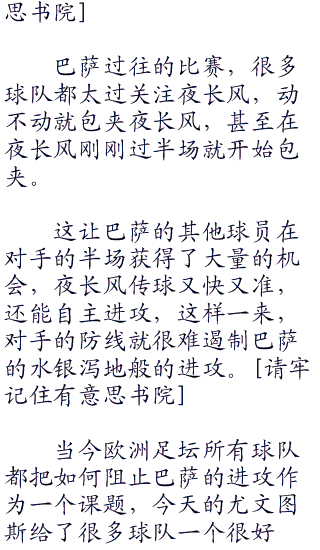 思书院]
巴萨过往的比赛，很多
球队都太过关注夜长风，动
不动就包夹夜长风，甚至在
夜长风刚刚过半场就开始包
夹。
这让巴萨的其他球员在
对手的半场获得了大量的机
会，夜长风传球又快又准，
还能自主进攻，这样一来，
对手的防线就很难遏制巴萨
的水银泻地般的进攻。[请牢
记住有意思书院]
当今欧洲足坛所有球队
都把如何阻止巴萨的进攻作
为一个课题，今天的尤文图
斯给了很多球队一个很好